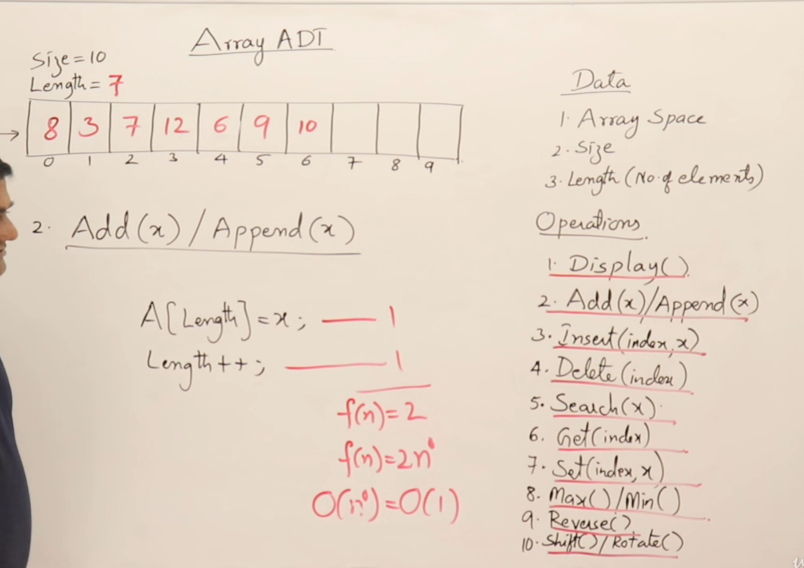 Array ADT
Size=10
Length=7
8 3 7 12 6 9 10
0 1 2 3 4 5 6 7 8 9
2. Add(x)/Append(x)
A[Length]=x; — 1
Length++; — 1
f(n)=2
f(n)=2n⁰
O(n⁰)=O(1)
Data
1. Array Space
2. Size
3. Length (No. of elements)
Operations
1. Display()
2. Add(x)/Append(x)
3. Insert(index,x)
4. Delete(index)
5. Search(x)
6. Get(index)
7. Set(index,x)
8. Max()/Min()
9. Reverse()
10. Shift()/Rotate()